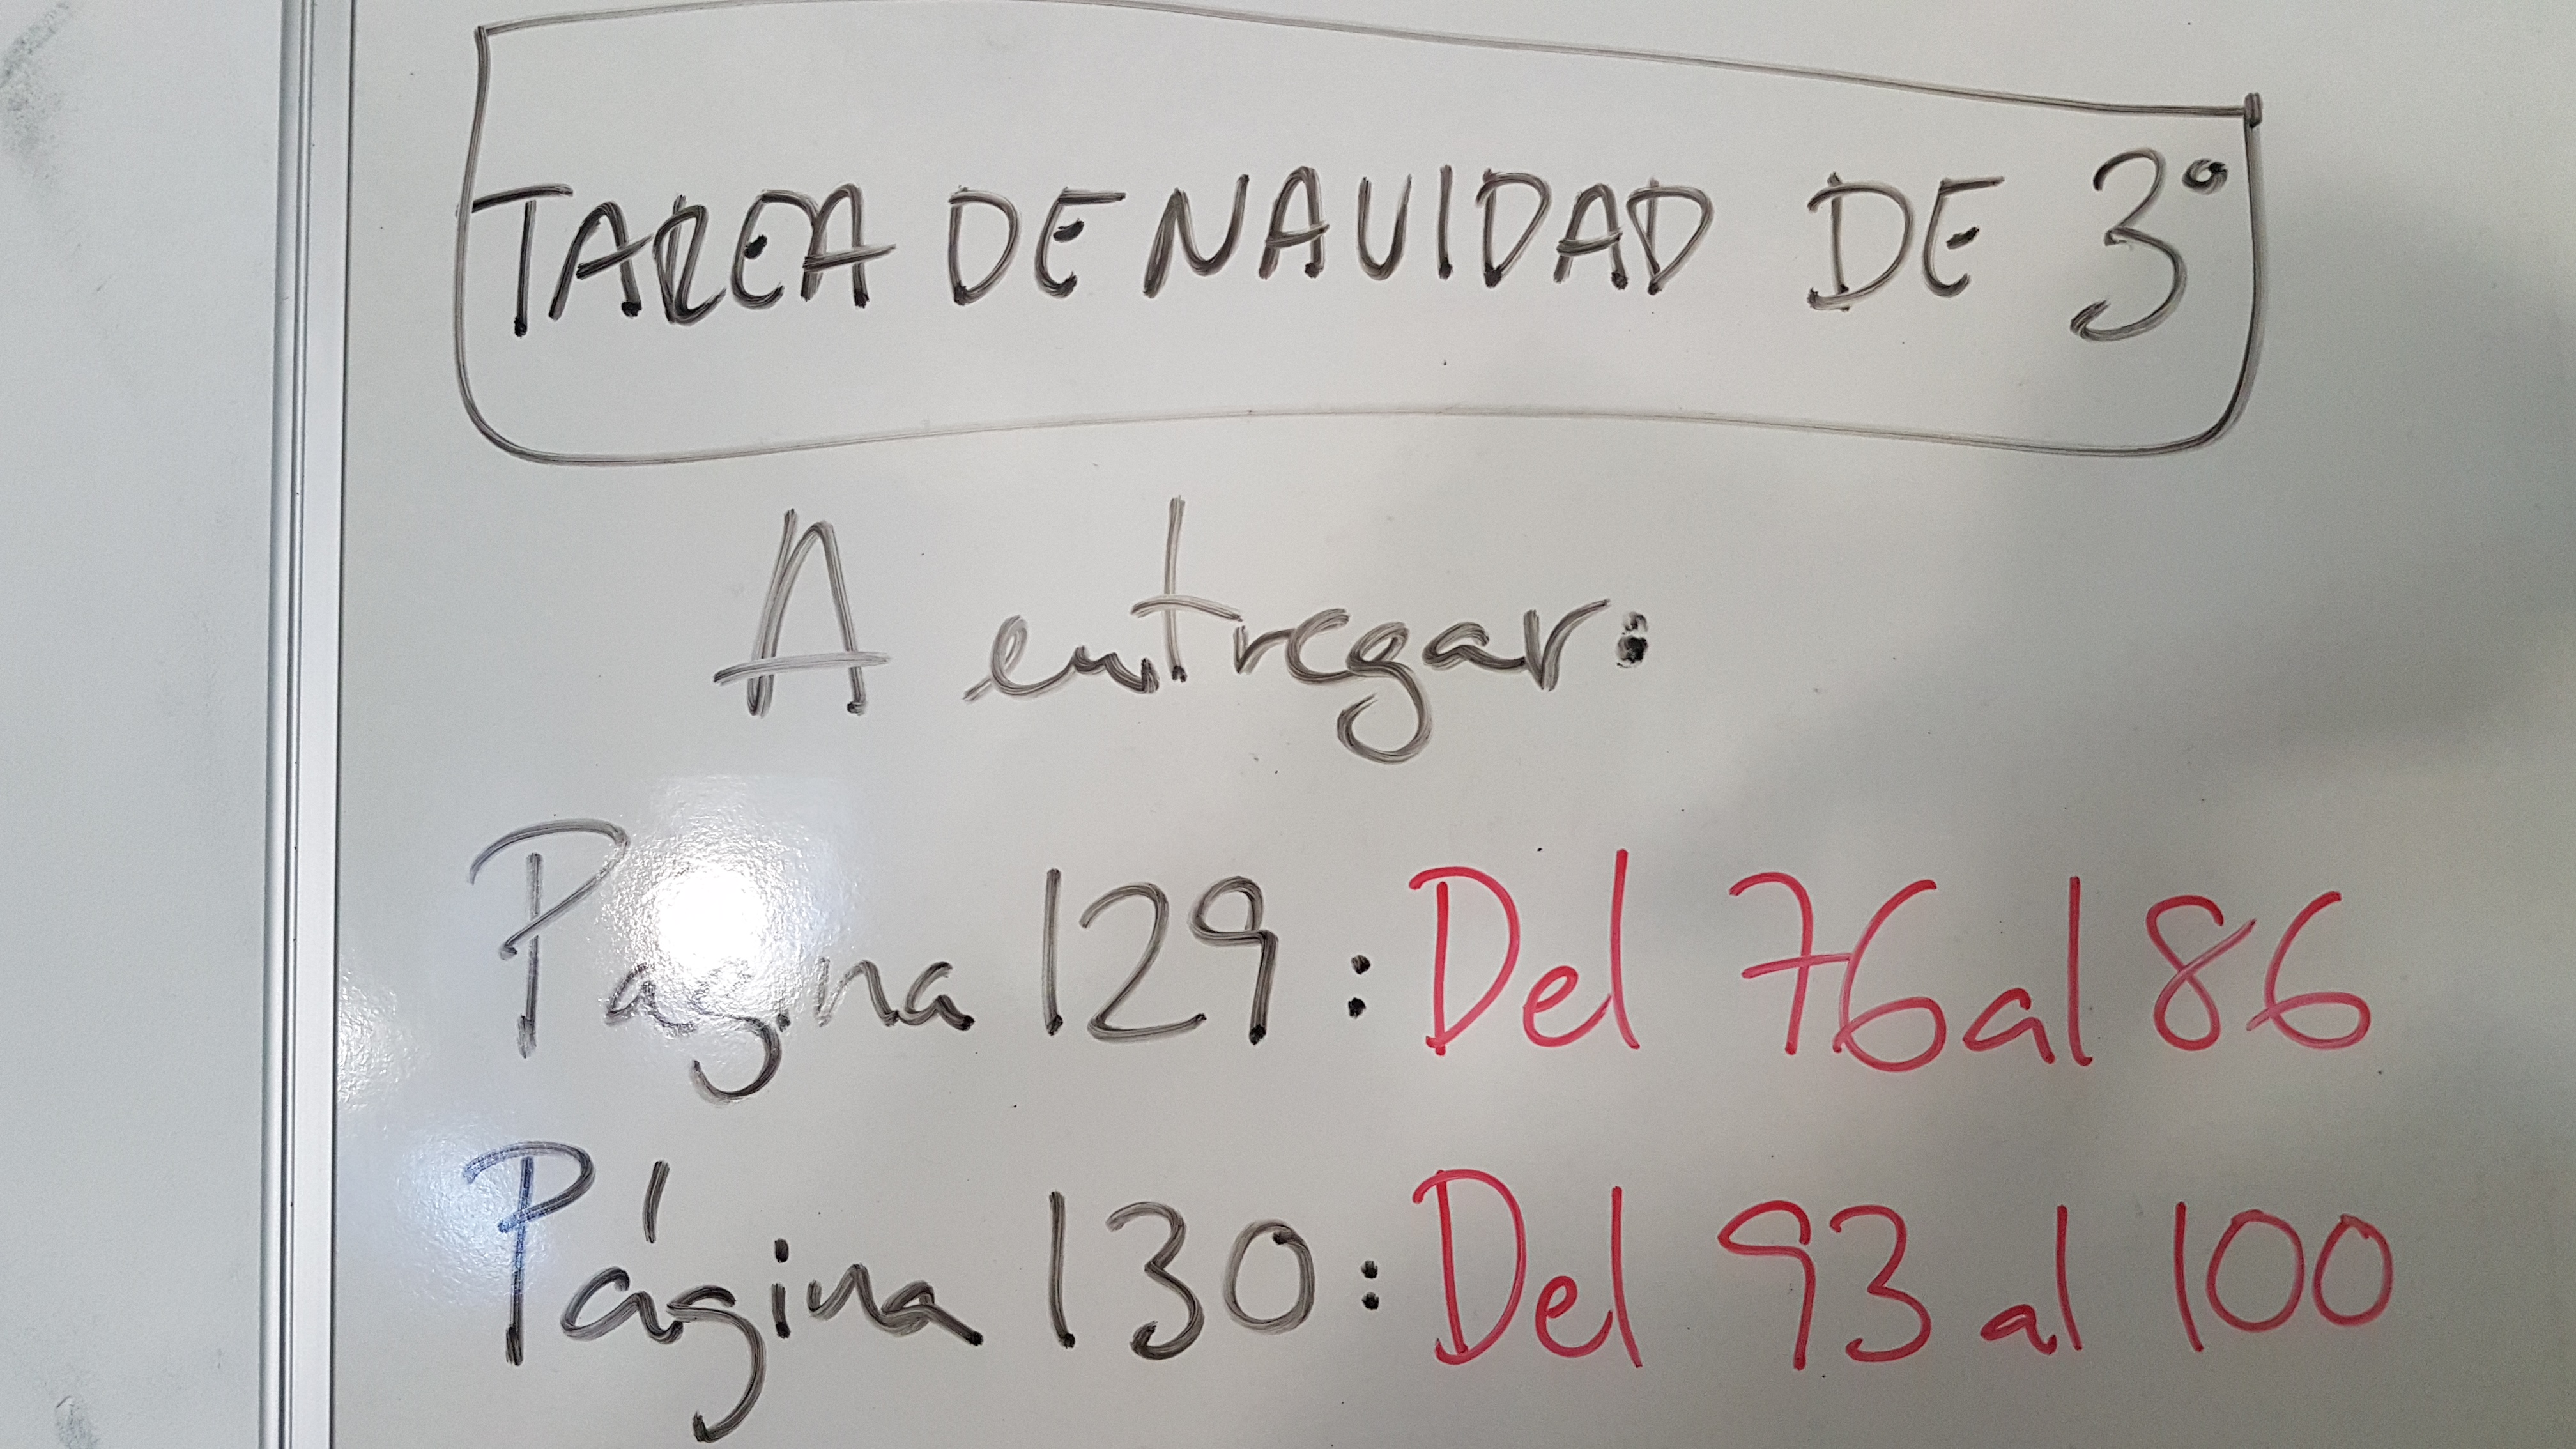 TAREA DE NAVIDAD DE 3º
A entregar:
Página 129: Del 76 al 86
Página 130: Del 93 al 100